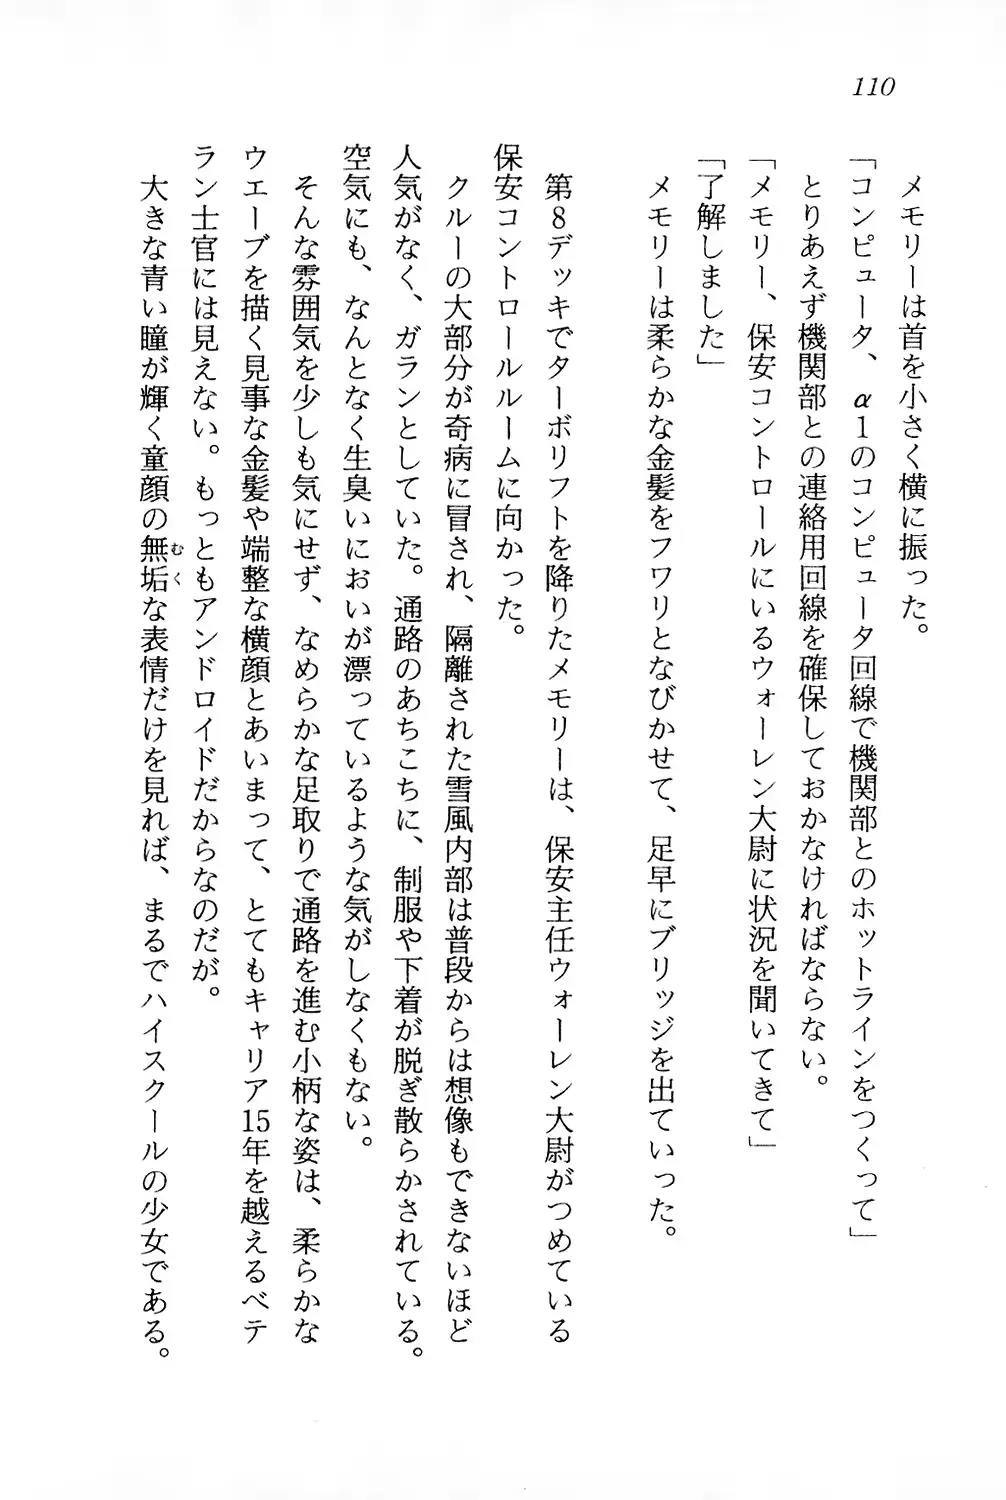 110
メモリーは首を小さく横に振った。
「コンピュータ、α1のコンピュータ回線で機関部とのホットラインをつくって」
とりあえず機関部との連絡用回線を確保しておかなければならない。
「メモリー、保安コントロールにいるウォーレン大尉に状況を聞いてきて」
「了解しました」
メモリーは柔らかな金髪をフワリとなびかせて、足早にブリッジを出ていった。
第8デッキでターボリフトを降りたメモリーは、保安主任ウォーレン大尉がつめている
保安コントロールルームに向かった。
クルーの大部分が奇病に冒され、隔離された雪風内部は普段からは想像もできないほど
人気がなく、ガランとしていた。通路のあちこちに、制服や下着が脱ぎ散らかされている。
空気にも、なんとなく生臭いにおいが漂っているような気がしなくもない。
そんな雰囲気を少しも気にせず、なめらかな足取りで通路を進む小柄な姿は、柔らかな
ウエーブを描く見事な金髪や端整な横顔とあいまって、とてもキャリア15年を越えるベテ
ラン士官には見えない。もっともアンドロイドだからなのだが。
大きな青い瞳が輝く童顔の無垢な表情だけを見れば、まるでハイスクールの少女である。
むく